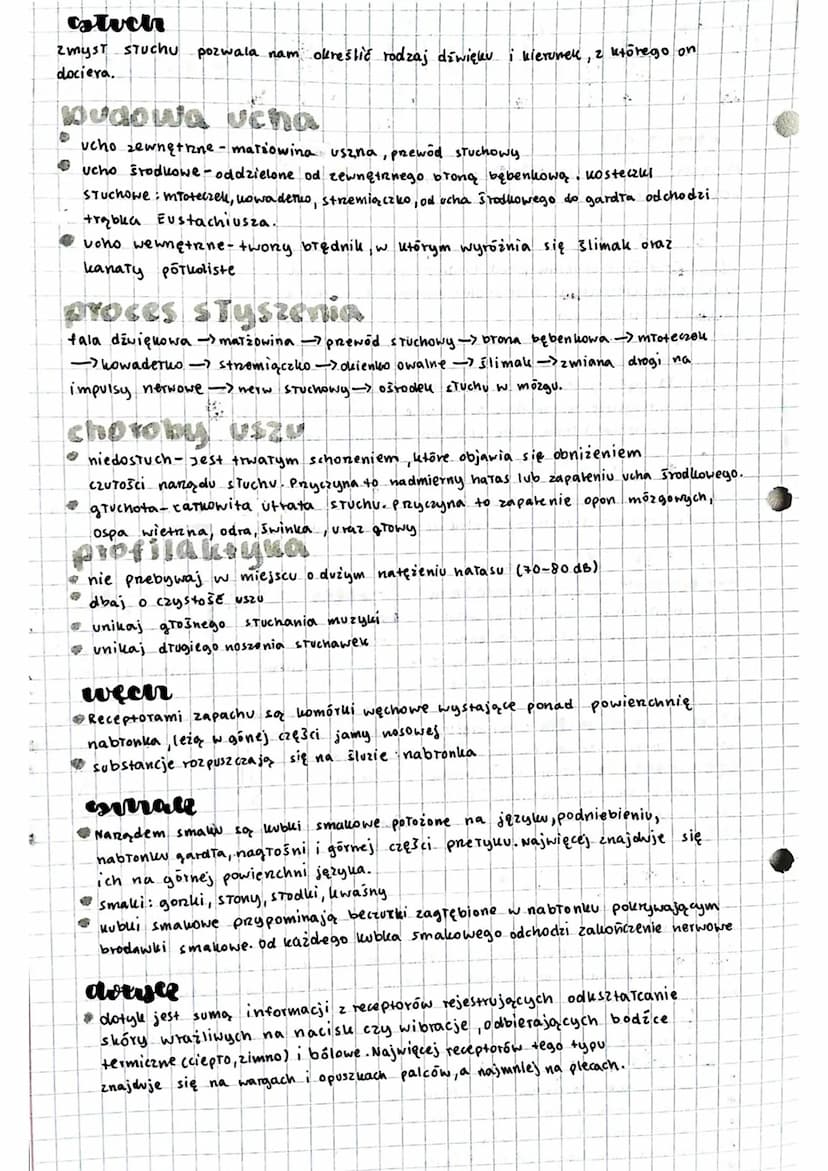 słuch
zmysł słuchu pozwala nam określić rodzaj dźwięku i kierunek, z którego on
dociera.
budowa ucha
• ucho zewnętrzne - małżowina uszna, przewód słuchowy
• ucho środkowe - oddzielone od zewnętrznego błoną bębenkową. kosteczki
słuchowe: młoteczek, kowadełko, strzemiączko, od ucha środkowego do gardła odchodzi
trąbka Eustachiusza.
• ucho wewnętrzne - tworzy błędnik, w którym wyróżnia się ślimak oraz
kanały półkoliste
proces słyszenia
fala dźwiękowa → małżowina → przewód słuchowy → błona bębenkowa → młoteczek
→ kowadełko → strzemiączko → okienko owalne → ślimak → zmiana drogi na
impulsy nerwowe → nerw słuchowy → ośrodek słuchu w mózgu.
choroby uszu
• niedosłuch - jest trwałym schorzeniem, które objawia się obniżeniem
czułości narządu słuchu. Przyczyna to nadmierny hałas lub zapaleniu ucha środkowego.
• głuchota - całkowita utrata słuchu. Przyczyna to zapalenie opon mózgowych,
ospa wietrzna, odra, świnka, uraz głowy
profilaktyka
• nie przebywaj w miejscu o dużym natężeniu hałasu (70-80 dB)
• dbaj o czystość uszu
• unikaj głośnego słuchania muzyki
• unikaj długiego noszenia słuchawek
węch
• Receptorami zapachu są komórki węchowe wystające ponad powierzchnię
nabłonka, leżą w górnej części jamy nosowej
• substancje rozpuszczają się na śluzie nabłonka
smak
• Narządem smaku są kubki smakowe położone na języku, podniebieniu,
nabłonku gardła, nagłośni i górnej części przełyku. Najwięcej znajduje się
ich na górnej powierzchni języka.
• smaki: gorzki, słony, słodki, kwaśny
• kubki smakowe przypominają beczułki zagłębione w nabłonku pokrywającym
brodawki smakowe. od każdego kubka smakowego odchodzi zakończenie nerwowe
dotyk
• dotyk jest sumą informacji z receptorów rejestrujących odkształcanie
skóry wrażliwych na nacisk czy wibracje, odbierających bodźce
termiczne (ciepło, zimno) i bólowe. Najwięcej receptorów tego typu
znajduje się na wargach i opuszkach palców, a najmniej na plecach.